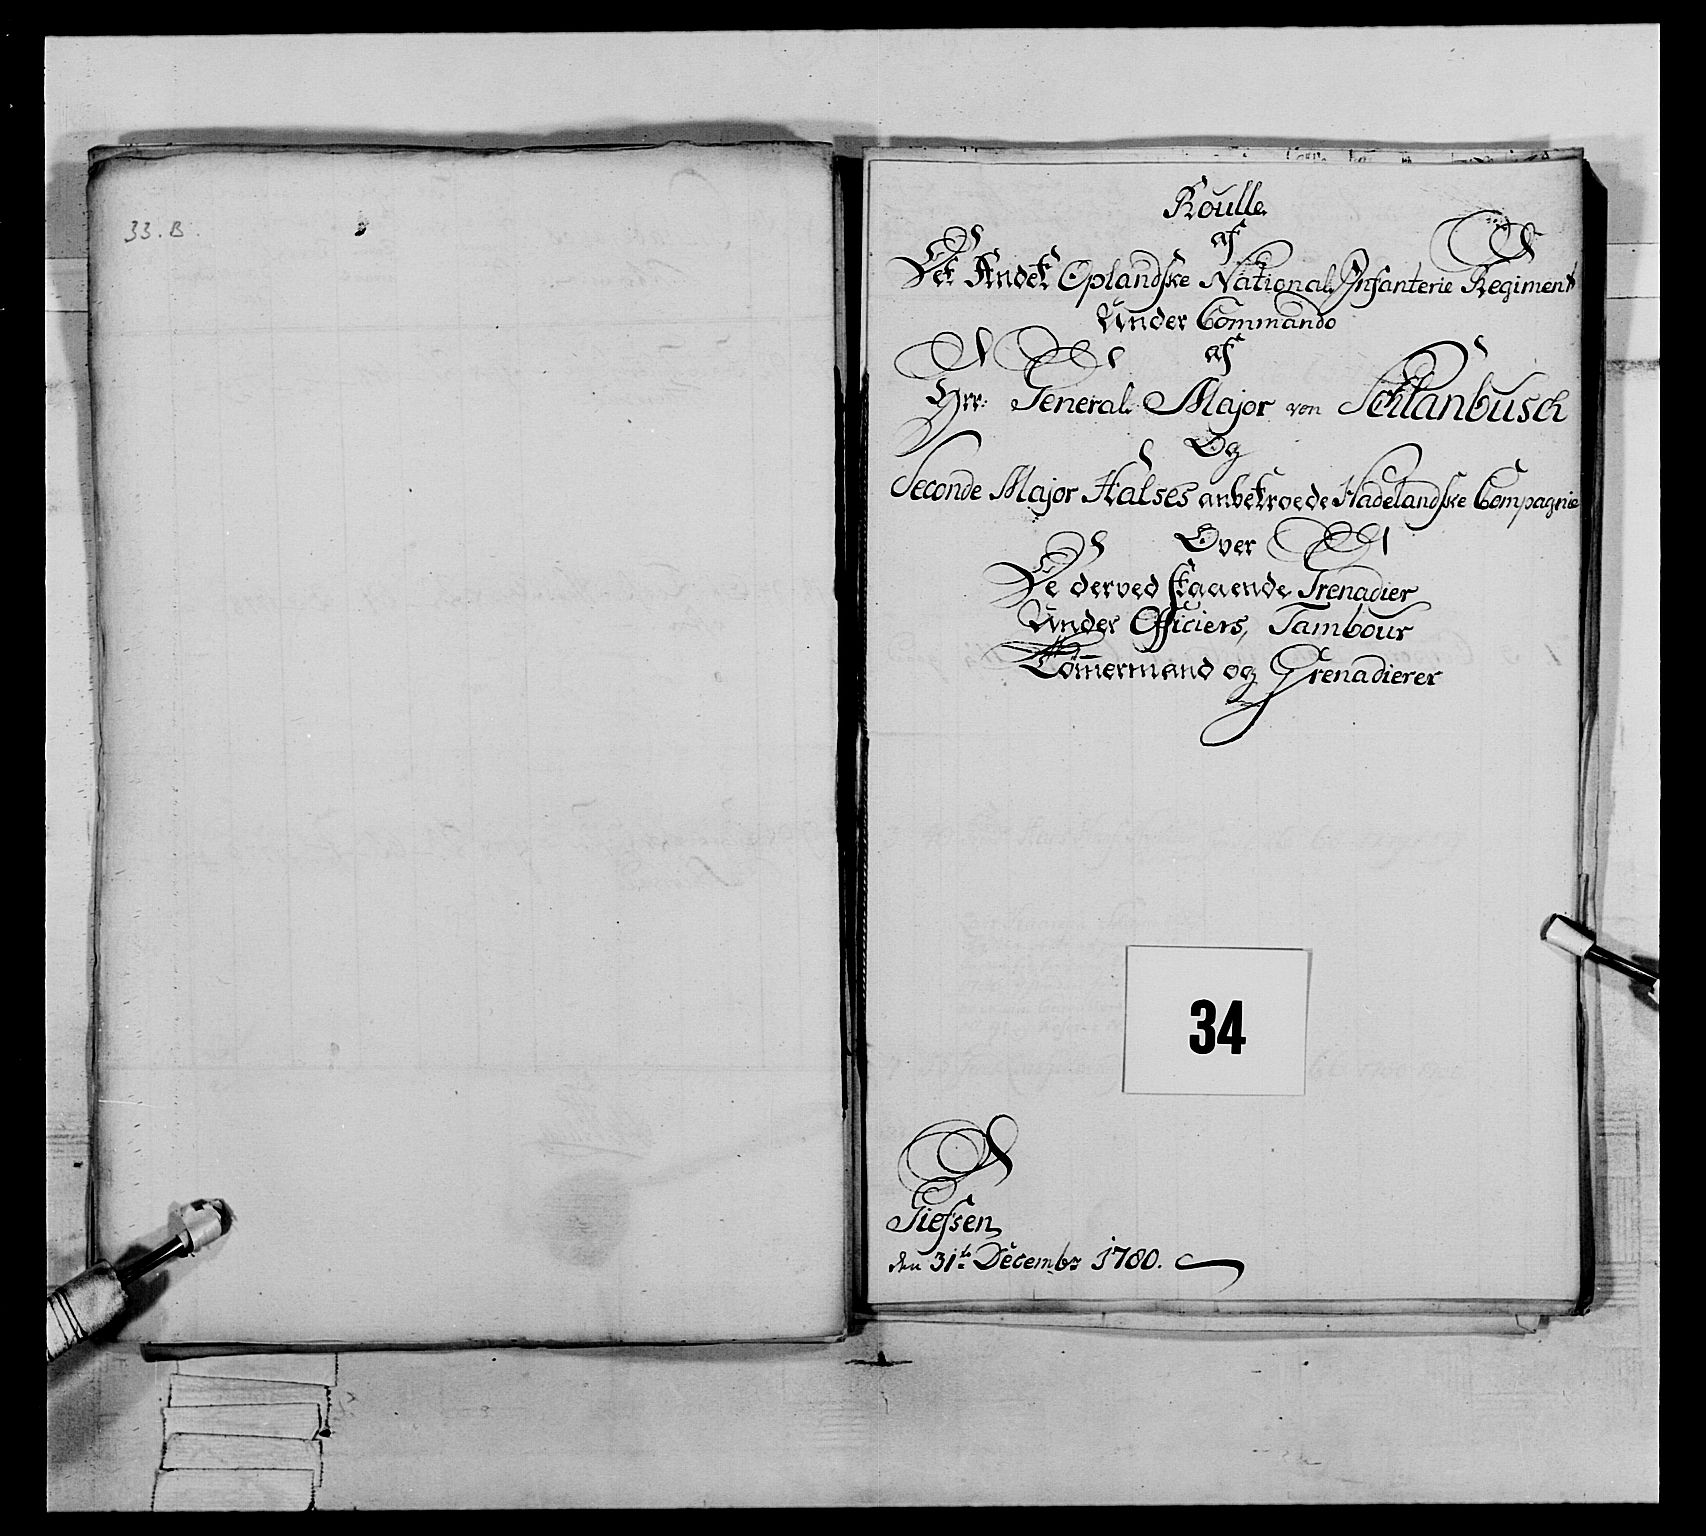 33.B.
Roulle
af
Det Andet Oplandske National Infanterie Regiment
Under Commando
af
Hrr: General Major von Schlanbusch
Og
Seconde Major Halses anbetroede Hadelandske Compagnie
Over
De derved staaende Grenadier
Under Officiers, Tambour
Tömermand og Grenadierer
34
Giefsen
den 31te Decembr 1780.